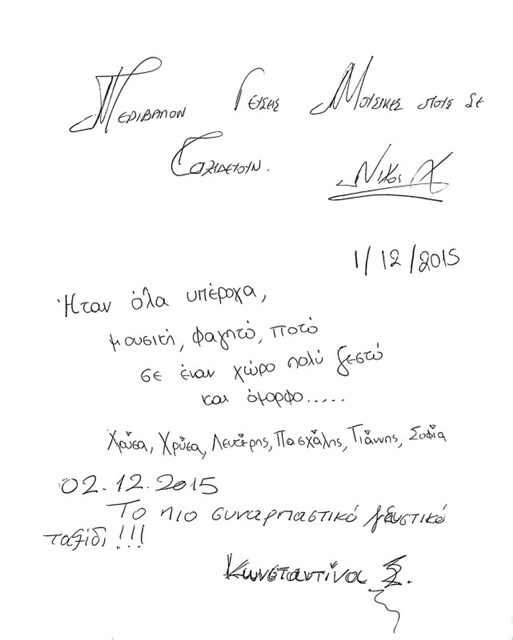 Περιβαλλον Γευσεις Μουσικες που σε
Ταξιδευουν.
Νικος Χ
1/12/2015
Ήταν όλα υπέροχα,
μουσική, φαγητό, ποτό
σε έναν χώρο πολύ ζεστό
και όμορφο.....
Χρύσα, Χρύσα, Λευτέρης, Πασχάλης, Γιάννης, Σοφία
02.12.2015
Το πιο συναρπαστικό γευστικό
ταξίδι!!!
Κωνσταντίνα Σ.